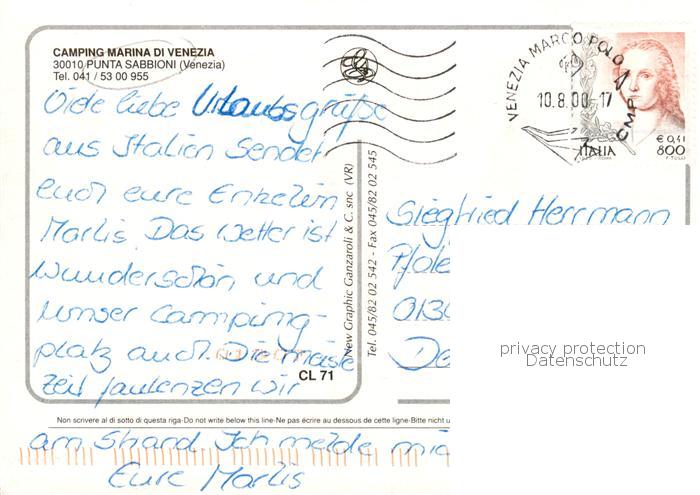 CAMPING MARINA DI VENEZIA
30010 PUNTA SABBIONI (Venezia)
Tel. 041 / 53 00 955
Viele liebe Urlaubsgrüße
aus Italien Sendet
euch eure Enkelin
Marlis. Das Wetter ist
wunderschön und
unser Camping-
platz auch. Die meiste
Zeit faulenzen wir
am Strand. Ich melde mic
Eure Marlis
CL 71
New Graphic Ganzaroli & C. snc (VR)
Tel. 045/82 02 542 - Fax 045/82 02 545
VENEZIA MARCO POLO
10.8.00-17
CMP
€ 0,41
ITALIA 800
Siegfried Herrmann
0130
De
privacy protection
Datenschutz
Non scrivere al di sotto di questa riga-Do not write below this line-Ne pas écrire au dessous de cette ligne-Bitte nicht u